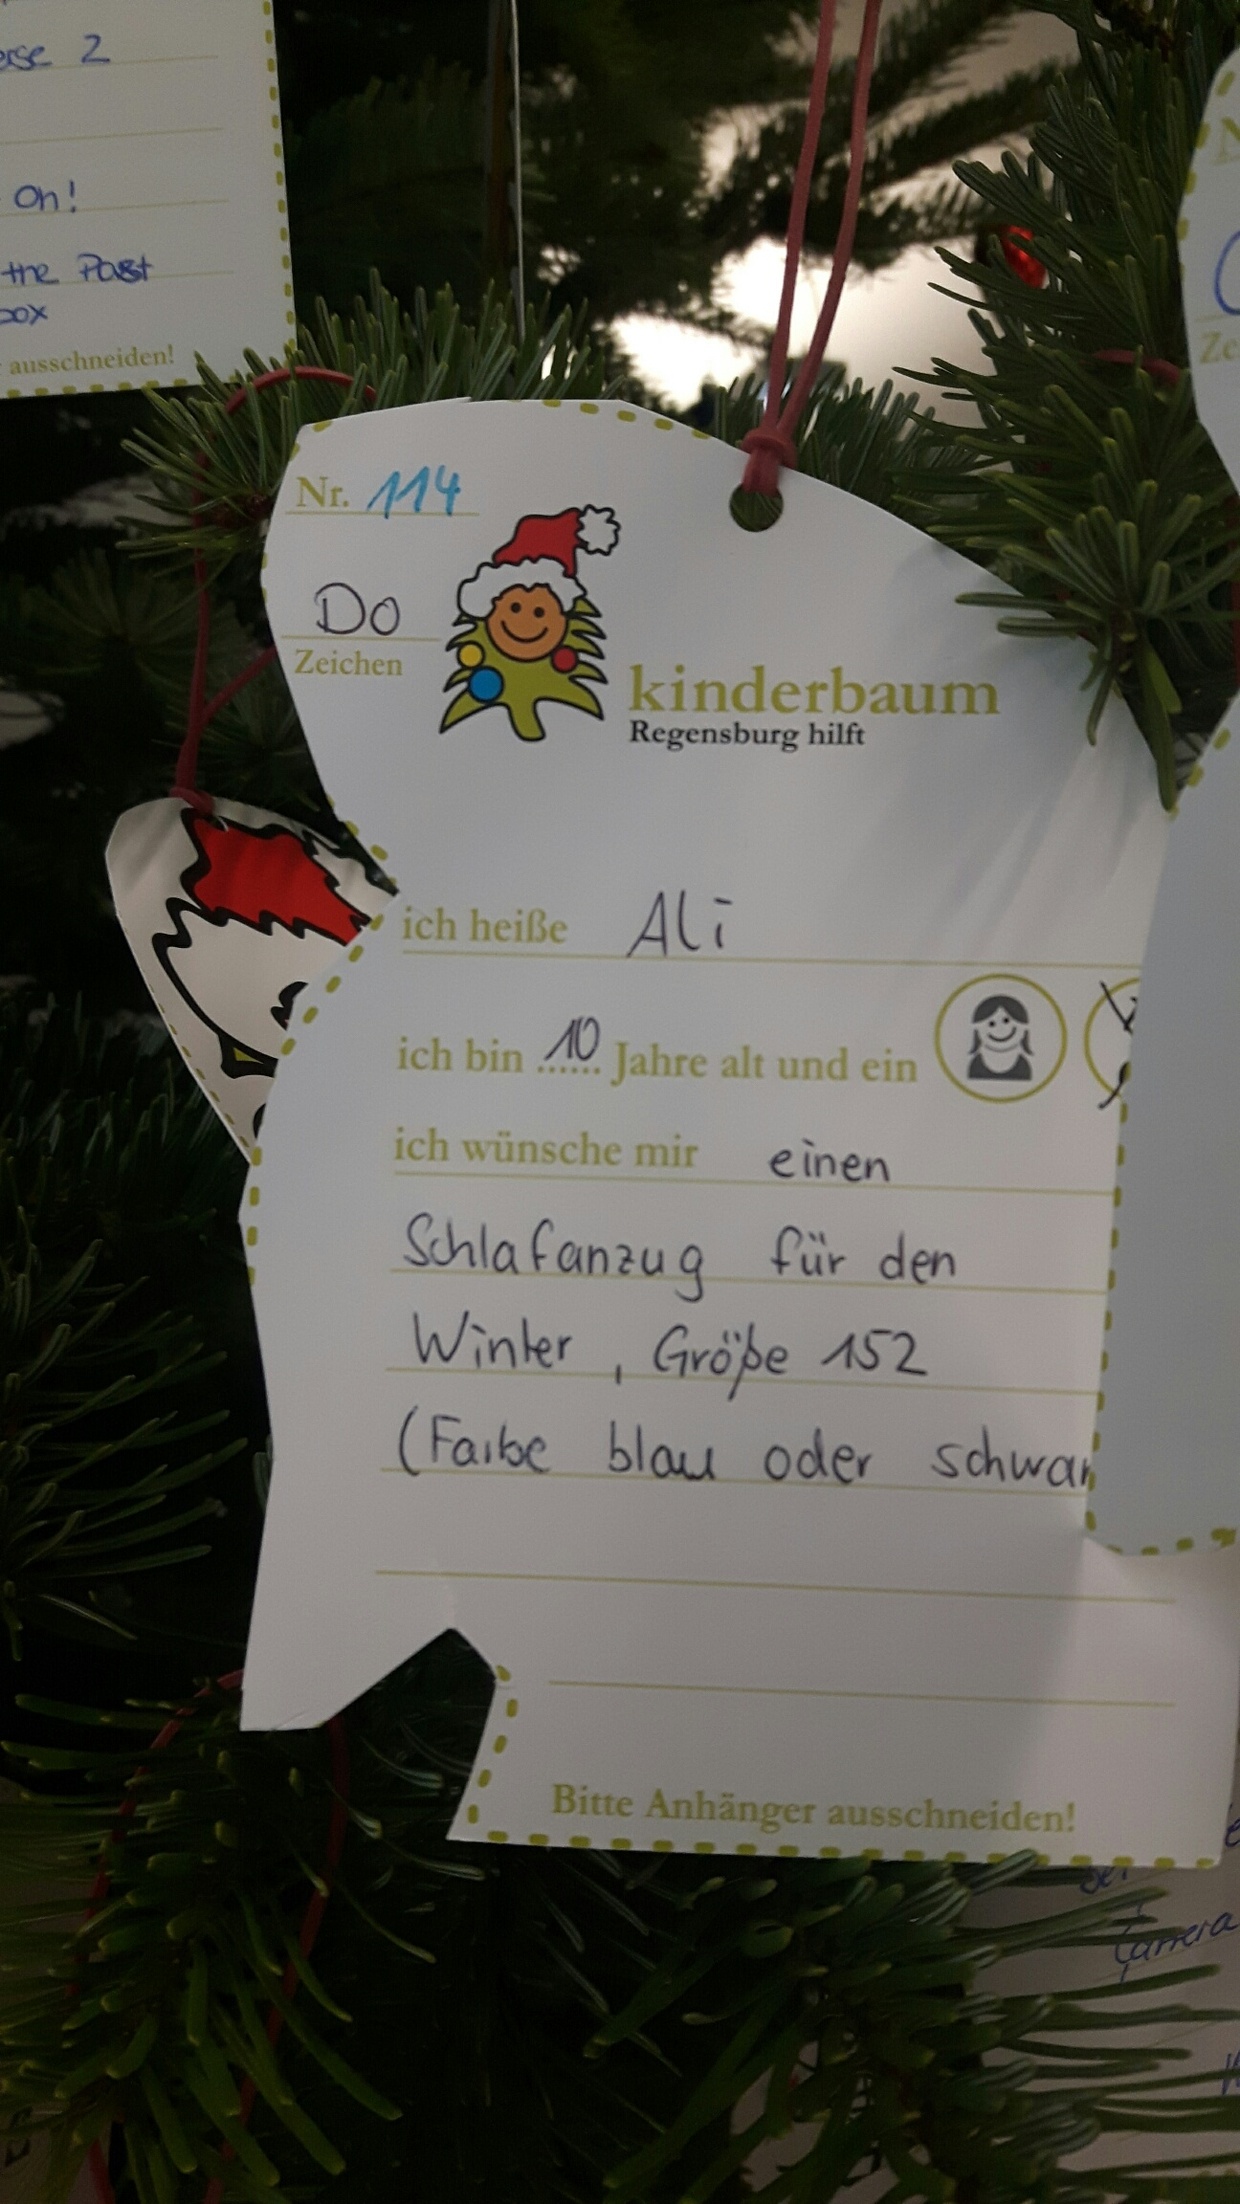 2
On!
the Past
box
ausschneiden!
Nr. 114
Do
Zeichen
kinderbaum
Regensburg hilft
ich heiße Ali
ich bin 10 Jahre alt und ein
ich wünsche mir einen
Schlafanzug für den
Winter, Größe 152
(Farbe blau oder schwar
Bitte Anhänger ausschneiden!
Carrera